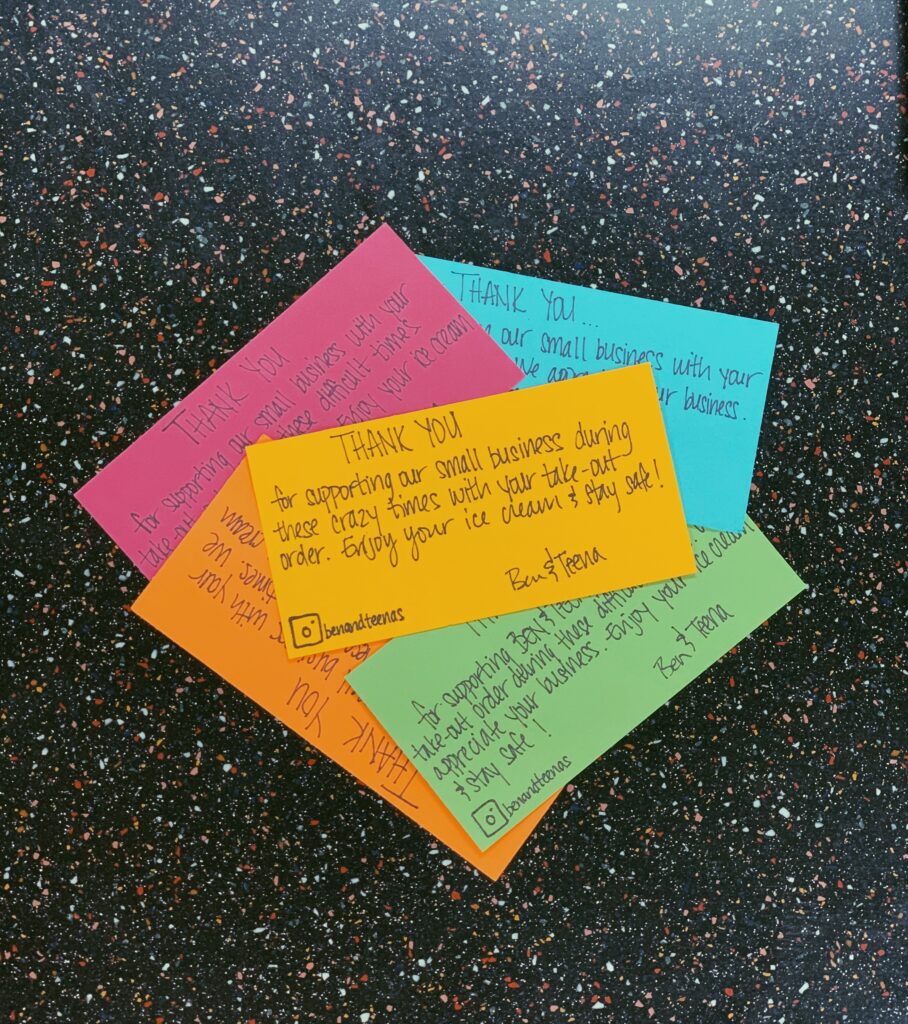 THANK YOU
for supporting our small business with your
take-out these difficult time's
Enjoy your ice cream
THANK YOU...
our small business with your
We
your business.
THANK YOU
for supporting our small business during
these crazy times with your take-out
order. Enjoy your ice cream & stay safe!
Ben & Teena
benandteenas
for supporting BEN &
take-out order during these difficult
appreciate your business. Enjoy your ice cream
& stay safe!
Ben & Teena
benandteenas
THANK YOU
with your
times. We
cream